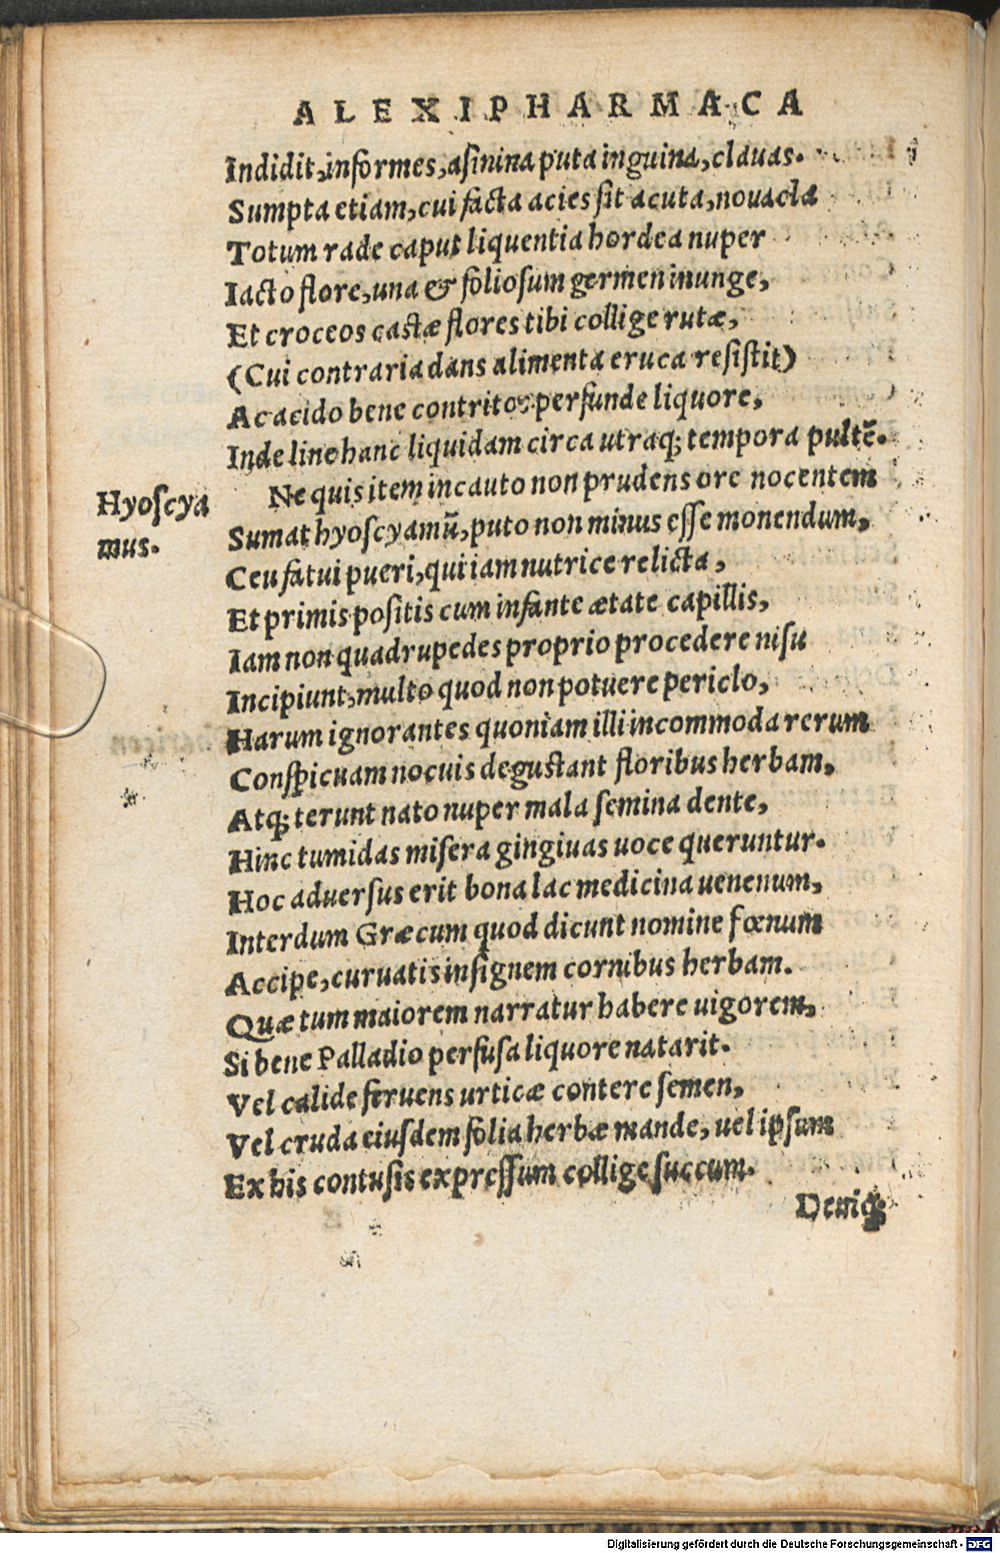 ALEXIPHARMACA
Indidit, informes, asinina puta inguina, clauas.
Sumpta etiam, cui facta acies sit acuta, nouacla
Totum rade caput liquentia hordea nuper
Iacto flore, una & foliosum germen inunge,
Et croceos castæ flores tibi collige rutæ,
(Cui contraria dans alimenta eruca resistit)
Ac acido bene contritos perfunde liquore,
Inde line hanc liquidam circa utraq; tempora pultē.
Ne quis item incauto non prudens ore nocentem
Hyoscya
mus.
Sumat hyoscyamū, puto non minus esse monendum,
Ceu fatui pueri, qui iam nutrice relicta,
Et primis positis cum infante ætate capillis,
Iam non quadrupedes proprio procedere nisu
Incipiunt, multo quod non potuere periclo,
Harum ignorantes quoniam illi incommoda rerum
Conspicuam nocuis degustant floribus herbam,
Atq; terunt nato nuper mala semina dente,
Hinc tumidas misera gingiuas uoce queruntur.
Hoc aduersus erit bona lac medicina uenenum,
Interdum Græcum quod dicunt nomine fœnum
Accipe, curuatis insignem cornibus herbam.
Quæ tum maiorem narratur habere uigorem,
Si bene Palladio perfusa liquore natarit.
Vel calide feruens urticæ contere semen,
Vel cruda eiusdem folia herbæ mande, uel ipsum
Ex his contusis expressum collige succum.
Deniq;
Digitalisierung gefördert durch die Deutsche Forschungsgemeinschaft - DFG